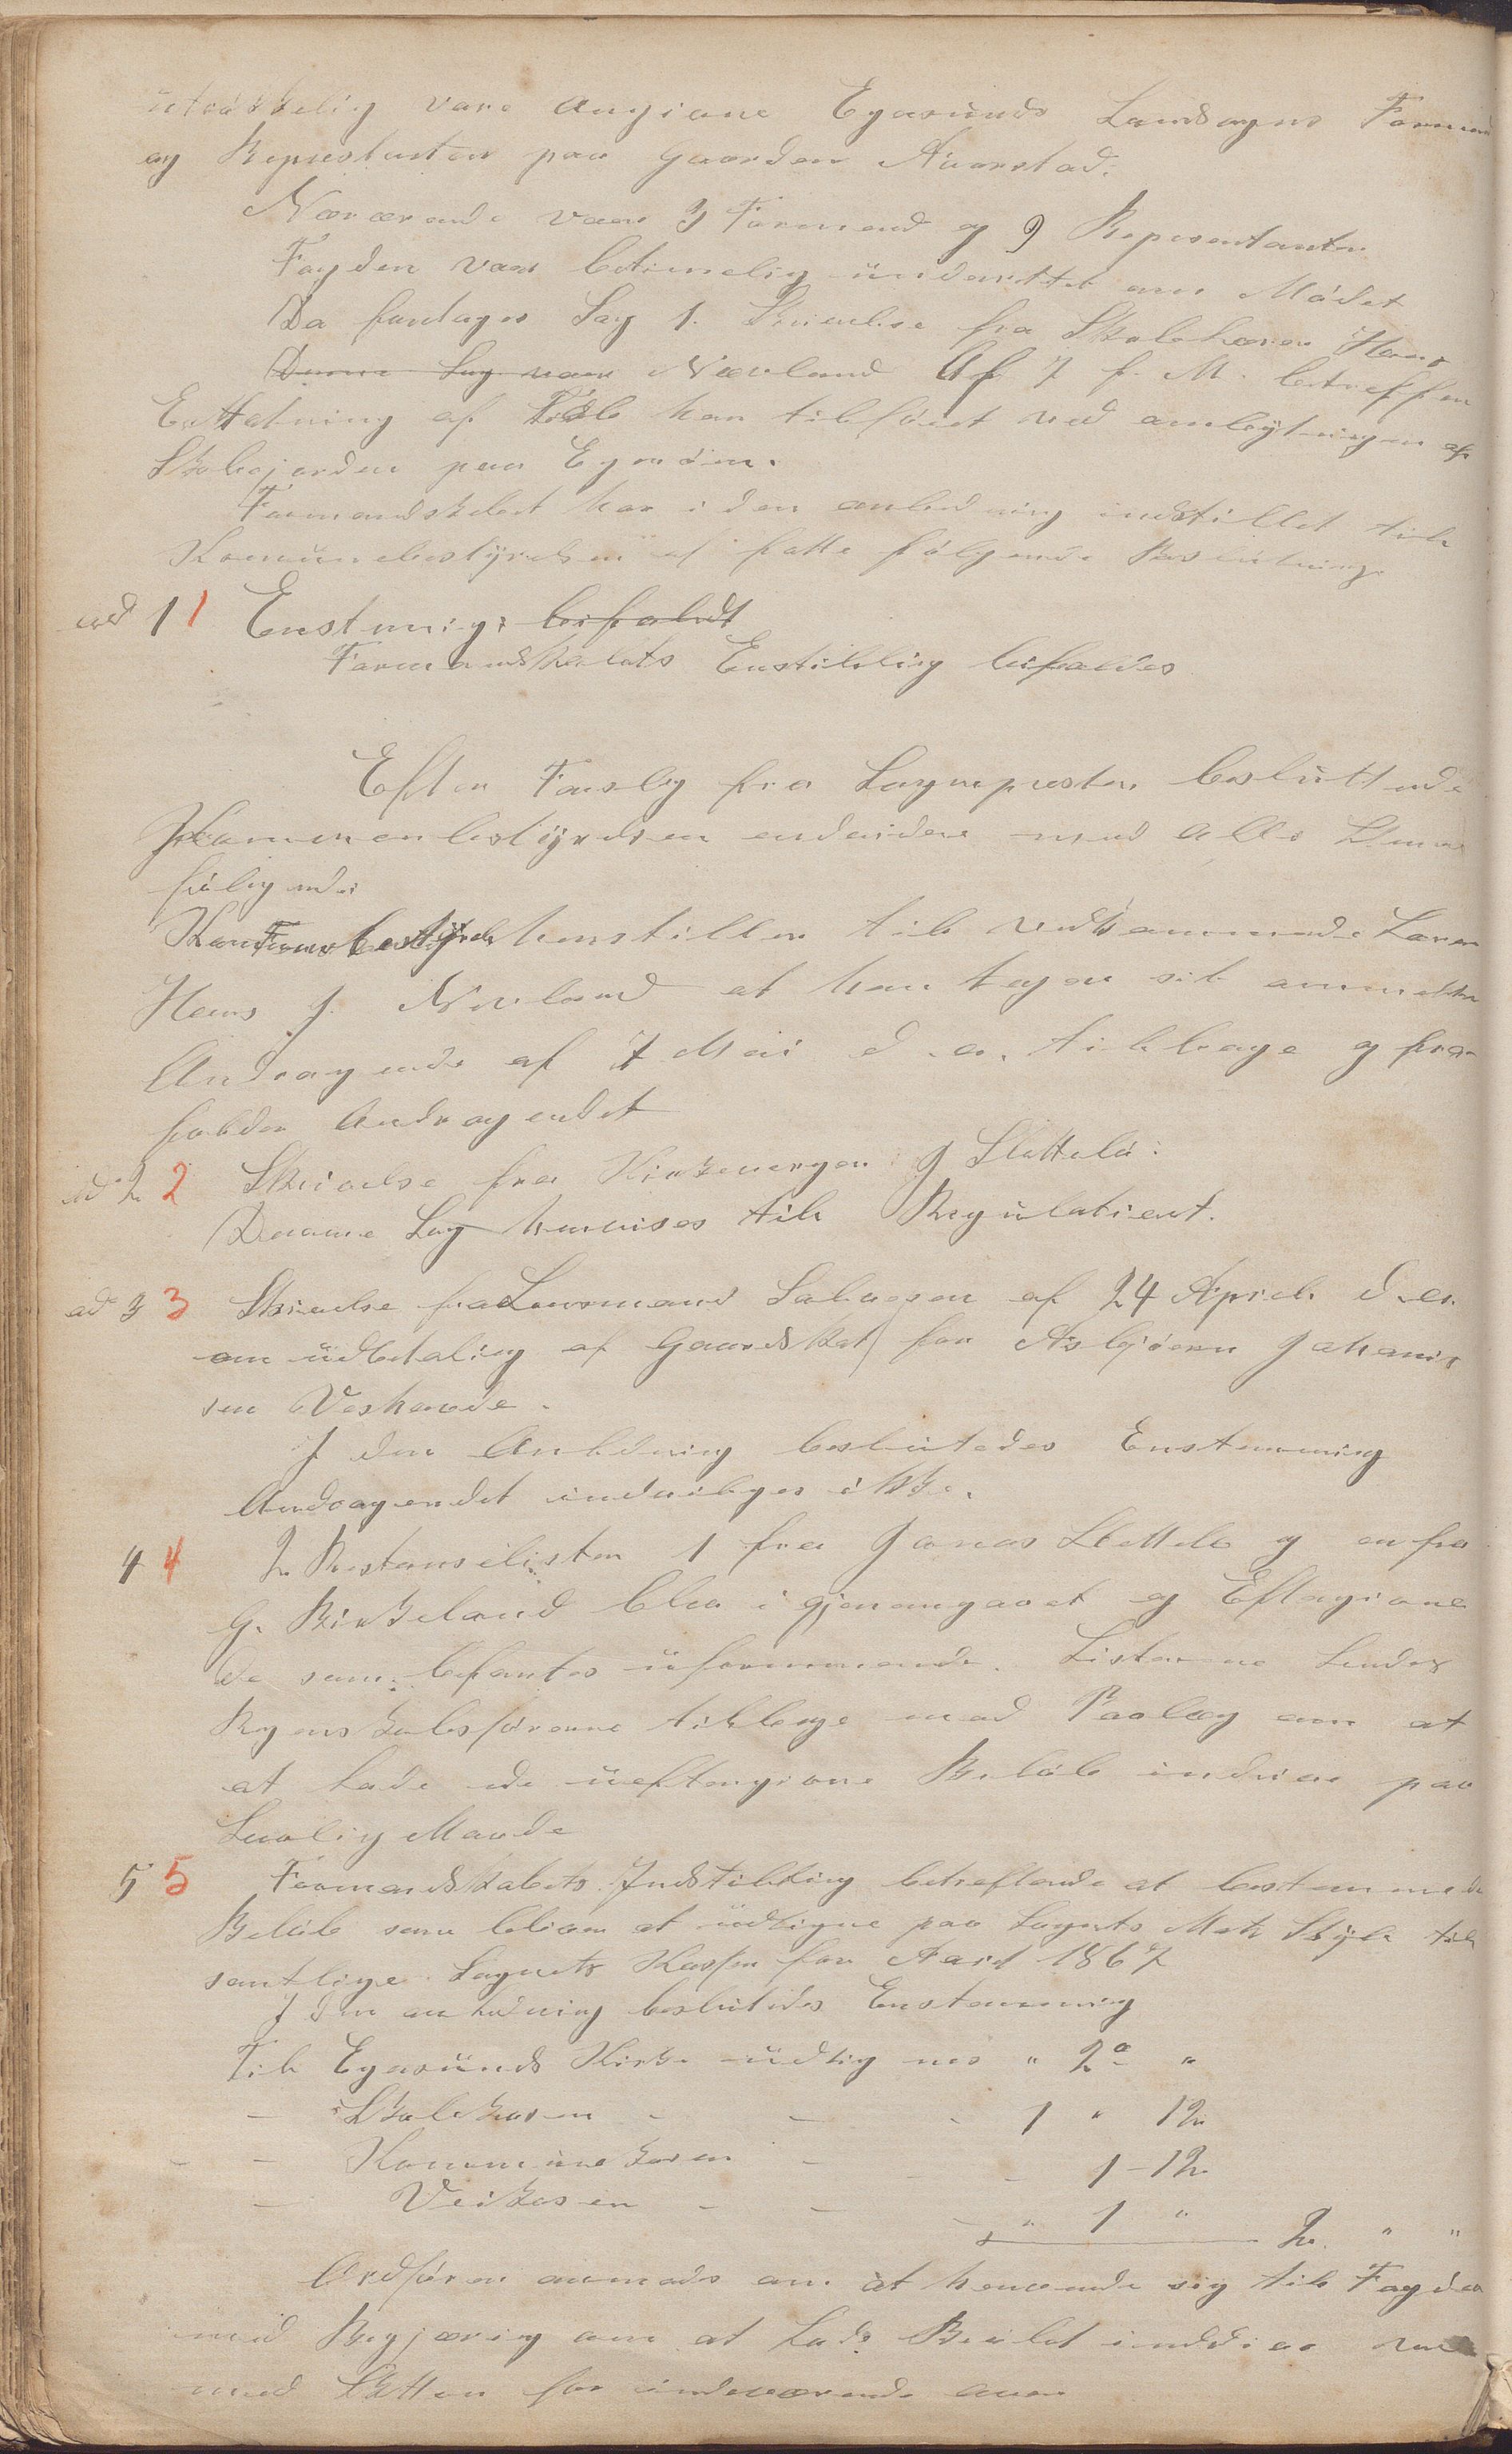 vare Angivne Egersunds Landsogns Formænd
og Representanter paa Gaarden Aarstad.
Nærværende vare 3 Formænd og 9 Representanter
Fogden var betimelig underrettet om Mødet
Da foretages Sag 1. Skrivelse fra Skolelærer Hans
Denne Sag var Nævland af 7 f. M. betreffen
Erstatning af Tab han tilføiet ved ambytningen af
Skolejorden paa Egerøen.
Formandskabet har i den anledning indstillet til
Komunebestyrelsen at fatte følgende Beslutning.
ad 1 1 Enstemig bifaldt
Formandskabets Enstilling bifaldes
Efter Forslag fra Sognepresten besluttende
Kommunebestyrelsen endvidere med Alle Stemmer
følgende:
henstiller til vedkommende Lærer
Hans J. Nævland at han tager sit
Andragende af 7 Mai d. a. tilbage og fra-
falder Andragendet
ad 2 2 Skrivelse fra Kirkevergen J Slettebø:
Denne Sag henvises til Regulativet.
ad 3 3 Skrivelse fra Lensmand Salvesen af 24 April d. a.
om udbetaling af Gaardskat for Asbjørn Johanis
sen Veshovde.
I den Anledning besluttedes Enstemmig
Andragendet indvilges ikke.
4 4 2 Restanselister 1 fra Jonas Slettebø og en fra
G. Birkeland blev igjennemgaaet og Eftergivne
de som befantes uformuende. Listerne sendes
Regnskabsførerne tilbage med Paalæg om at
at lade de ueftergivne Beløb inddrive paa
Lovlig Maade
5 5 Formandskabets Indstilling betreffende at bestemme de
Beløb som bliver at udligne paa Sognets Matr Skyld til
samtlige Sognets Kasser for Aaret 1867
I den anledning besluttedes Enstemmig
Til Egersunds Kirke udlignes " 2 "
- Skolekasen - - - 1 " 12
- - Kommunekasen - - - 1 - 12
- Veikasen - - - " 1 "
2 " "
Ordføren anmodes om at henvende sig til Fogden
med Begjæring om at lade Beløbet inddrive
med Skatten for indeværende aar